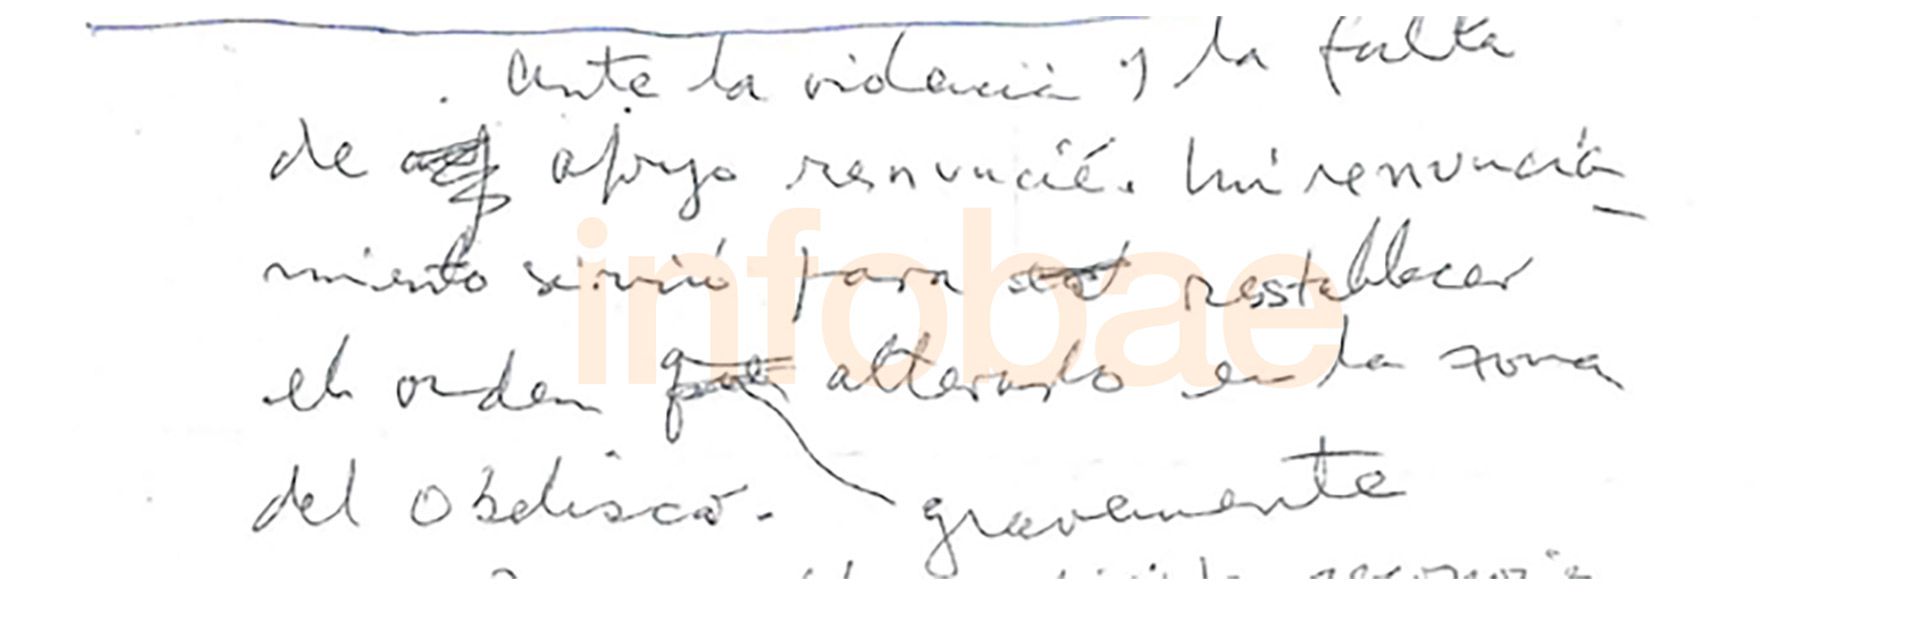 Ante la violencia y la falta
de apoyo renuncié. Mi renuncia
miento sirvió para restablecer
el orden alterado en la zona
del Obelisco. gravemente
infobae